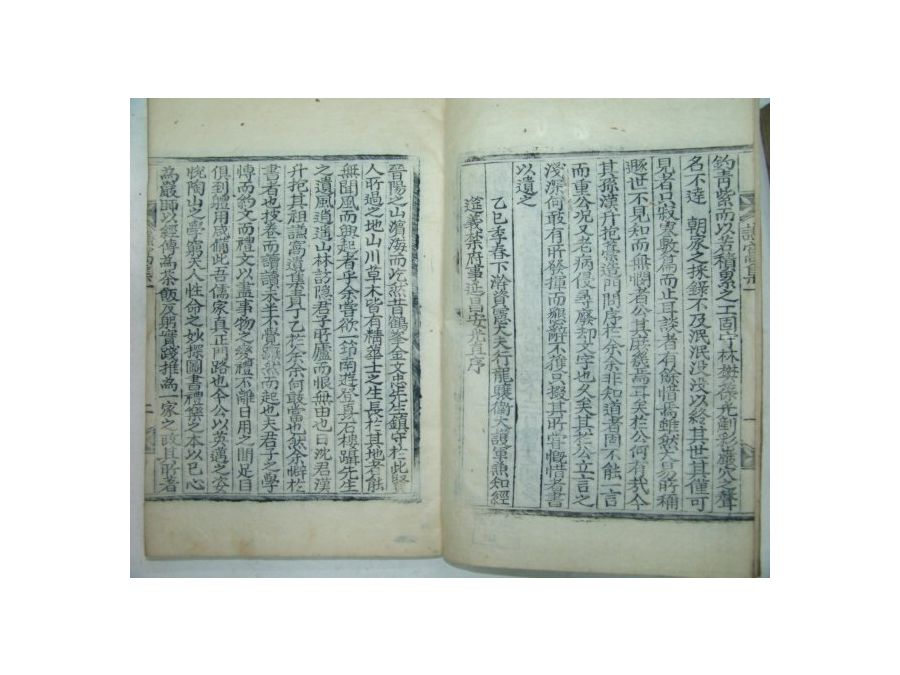 釣靑紫而以苦積累之工固守林樊葆光剷彩巖穴之聲
名不達 朝家之採錄不及泯泯沒沒以終其世其僅可
見者只戔戔數篇而止耳談者有餘惜焉雖然易所稱
遯世不見知而無悶者公其庶幾焉耳夫於公何有哉今
其孫漢升抱是卷造門問序於余余非知道者固不能一言
而重公况又老病侵尋廢却文字也久矣其於公立言之
淺深何敢有所發揮而顧辭不獲只掇其所嘗慨惜者書
以遺之
乙巳季春下澣資憲大夫行龍驤衛大護軍兼知經
筵義禁府事延昌安允直序
晉陽之山濱海而屹然昔鶴峯金文忠先生鎭守於此賢
人所過之地山川草木皆有精華士之生長於其地者能
無聞風而興起者乎余嘗欲一筇南遊登矗石樓躡先生
之遺風逍遙山林訪隱君子所廬而恨無由也日沈君漢
升抱其祖謙窩遺集責丁乙於余余何敢當也然今將於
書者也披卷而讀讀未半不覺蹶然而起也夫君子之學
博而約文而禮文以盡事物之變禮不離日用之間是自
俱到體用咸備此吾儒家眞正門路也今公以英邁之姿
悅陶山之學窮天人性命之妙探圖書禮樂之本以已心
爲嚴師以經傳爲茶飯反躬實踐推爲一家之政其所著